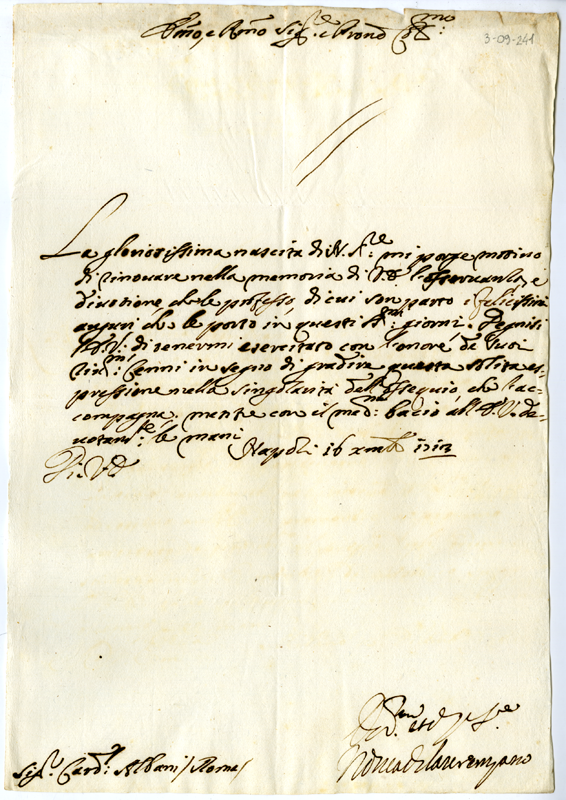 Em̃o, e Rm̃o Sig.re e Pron Col.mo
3-09-241
La gloriosissima nascita di N. S.re mi porge motivo
di rinovare nella memoria di V.E. l'osservanza, e
divotione, che le professo, di cui son parto i felicissimi
augurj che le porto in questi S.mi giorni. Degnisi
l'E.V. di tenermi esercitato con l'onore de' suoi
stim.mi cenni in segno di gradire questa solita es-
pressione nella singolarità dell'ossequio, che l'ac-
compagna, mentre con il med.mo bacio all'E.V. de-
votam.te le mani
Napoli 16 xmbre
Di V.E.
Sig.r Card.l Albani / Roma /